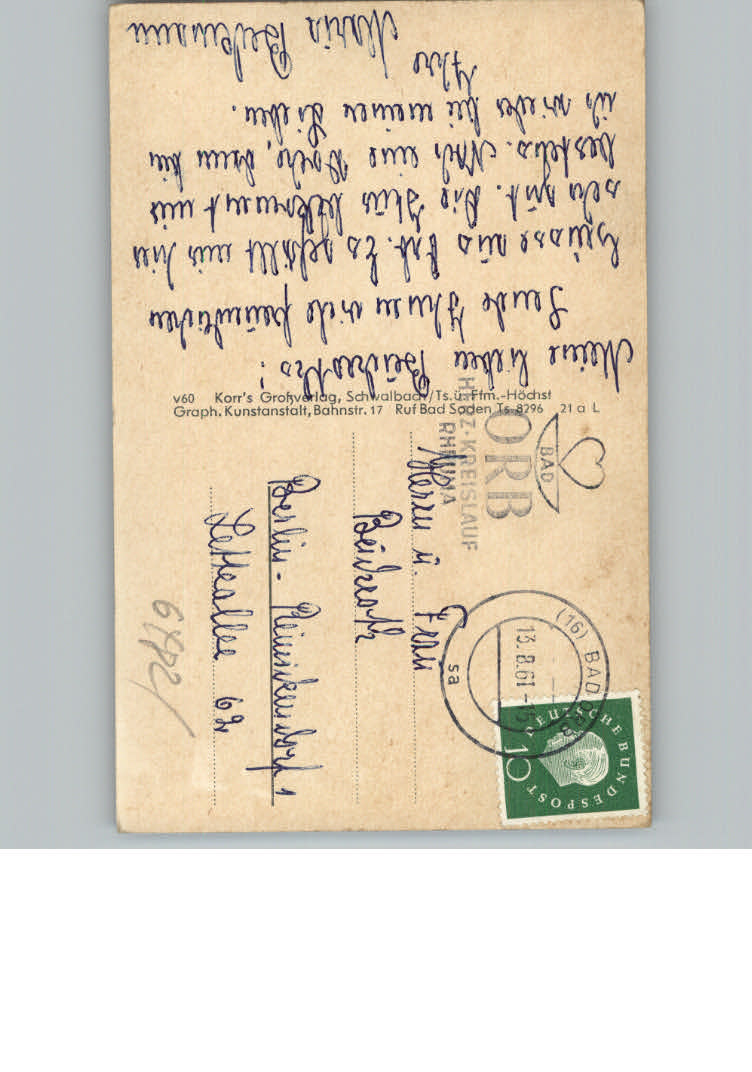 Meine lieben
Sende Ihnen viele freundlichen
Grüsse aus Orb. Es gefällt mir hier
sehr gut. Die Kur bekommt mir
bestens. Noch eine Woche, dann bin
ich wieder bei meinen Lieben.
Ihre
Maria
v60 Korr's Großverlag, Schwalbach/Ts.ü.Ffm.-Höchst
Graph. Kunstanstalt, Bahnstr. 17 Ruf Bad Soden Ts. 8296 21 a L
BAD
ORB
HERZ·KREISLAUF
RHEUMA
(16) BAD ORB
13.8.61-15
sa
DEUTSCHE BUNDESPOST
10
Herrn u. Frau
Berlin-Reinickendorf 1
Letteallee 62